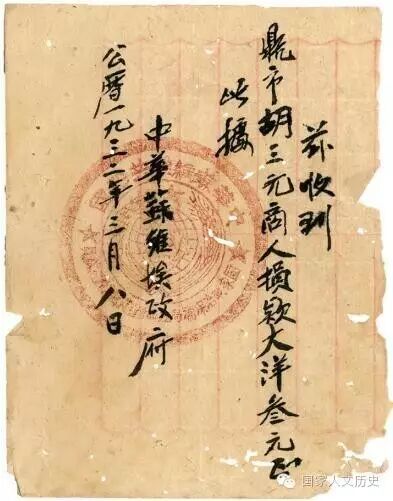 兹收到
市胡三元商人捐欵大洋叁元
此據
中華蘇維埃政府
公曆一九三二年三月八日
国家人文历史